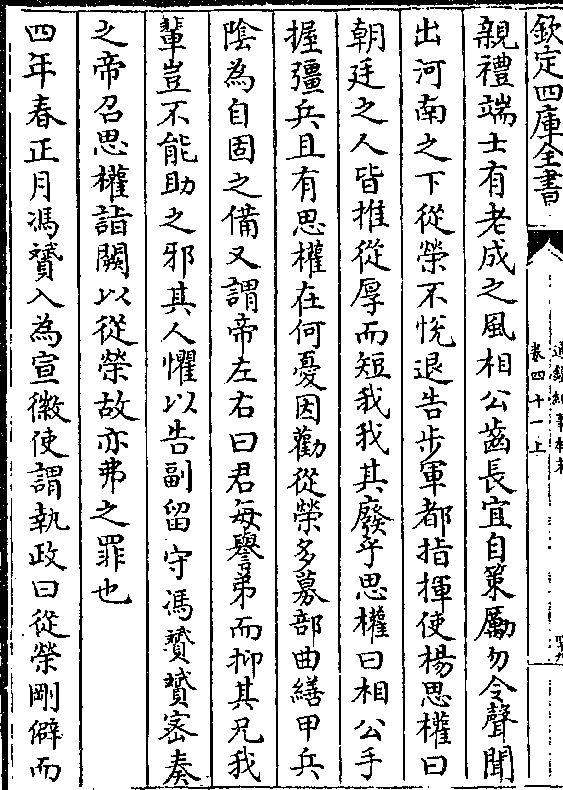 欽定四庫全書
卷四十一上
親禮端士有老成之風相公齒長宜自策勵勿令聲聞
出河南之下從榮不恱退告步軍都指揮使楊思權曰
朝廷之人皆推從厚而短我我其廢乎思權曰相公手
握彊兵且有思權在何憂因勸從榮多募部曲繕甲兵
隂為自固之備又謂帝左右曰君每譽弟而抑其兄我
輩豈不能助之邪其人懼以告副留守馮贇贇宻奏
之帝召思權詣闕以從榮故亦弗之罪也
四年春正月馮贇入為宣徽使謂執政曰從榮剛僻而